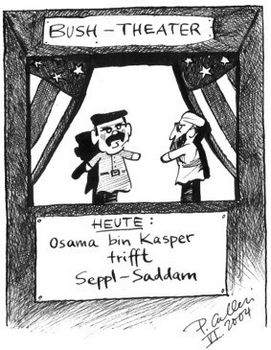 BUSH-THEATER
HEUTE:
Osama bin Kasper
trifft
Seppl-Saddam
VI 2004